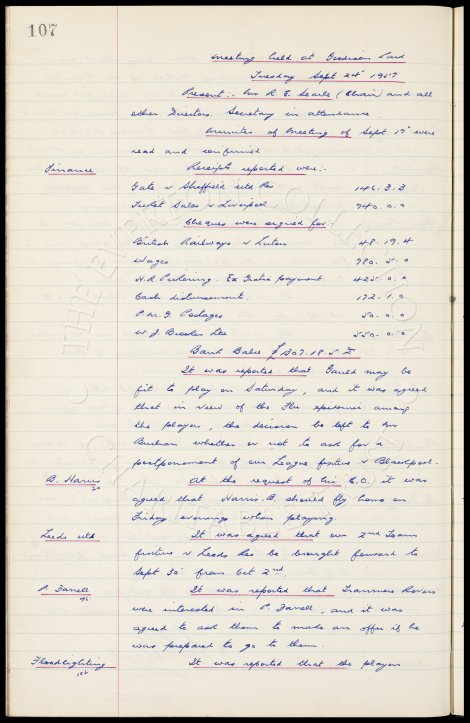 107
Meeting held at Goodison Park
Tuesday Sept 24' 1957
Present:- Mr R. E. Searle (Chair) and all
other Directors. Secretary in attendance.
Minutes of Meeting of Sept 17' were
read and confirmed.
Finance Receipts reported were:-
Gate v Sheffield Utd Res 146. 3. 3
Ticket Sales v Liverpool 940. 0. 0
Cheques were signed for:
British Railways v Luton 48. 19. 4
Wages 780. 5. 0
N.R. Pickering. Ex Gratia payment 425. 0. 0
Cash disbursements. 172. 1. 0
P.M.G. Postages 50. 0. 0
W. J. Lee 550. 0. 0
Bank Balce £1307. 18. 5
It was reported that Gauld may be
fit to play on Saturday, and it was agreed
that in view of the Flu epidemic among
the players, the decision be left to Mr
Buchan whether or not to ask for a
postponement of our League fixture v Blackpool.
B. Harris At the request of his C.O. it was
agreed that Harris. B. should fly home on
Friday evenings when playing.
Leeds Utd It was agreed that our 2nd Team
fixture v Leeds Res be brought forward to
Sept 30' from Oct 2nd.
P. Farrell It was reported that Tranmere Rovers
were interested in P. Farrell, and it was
agreed to ask them to make an offer if he
was prepared to go to them.
Floodlighting It was reported that the players
THE EVERTON COLLECTION